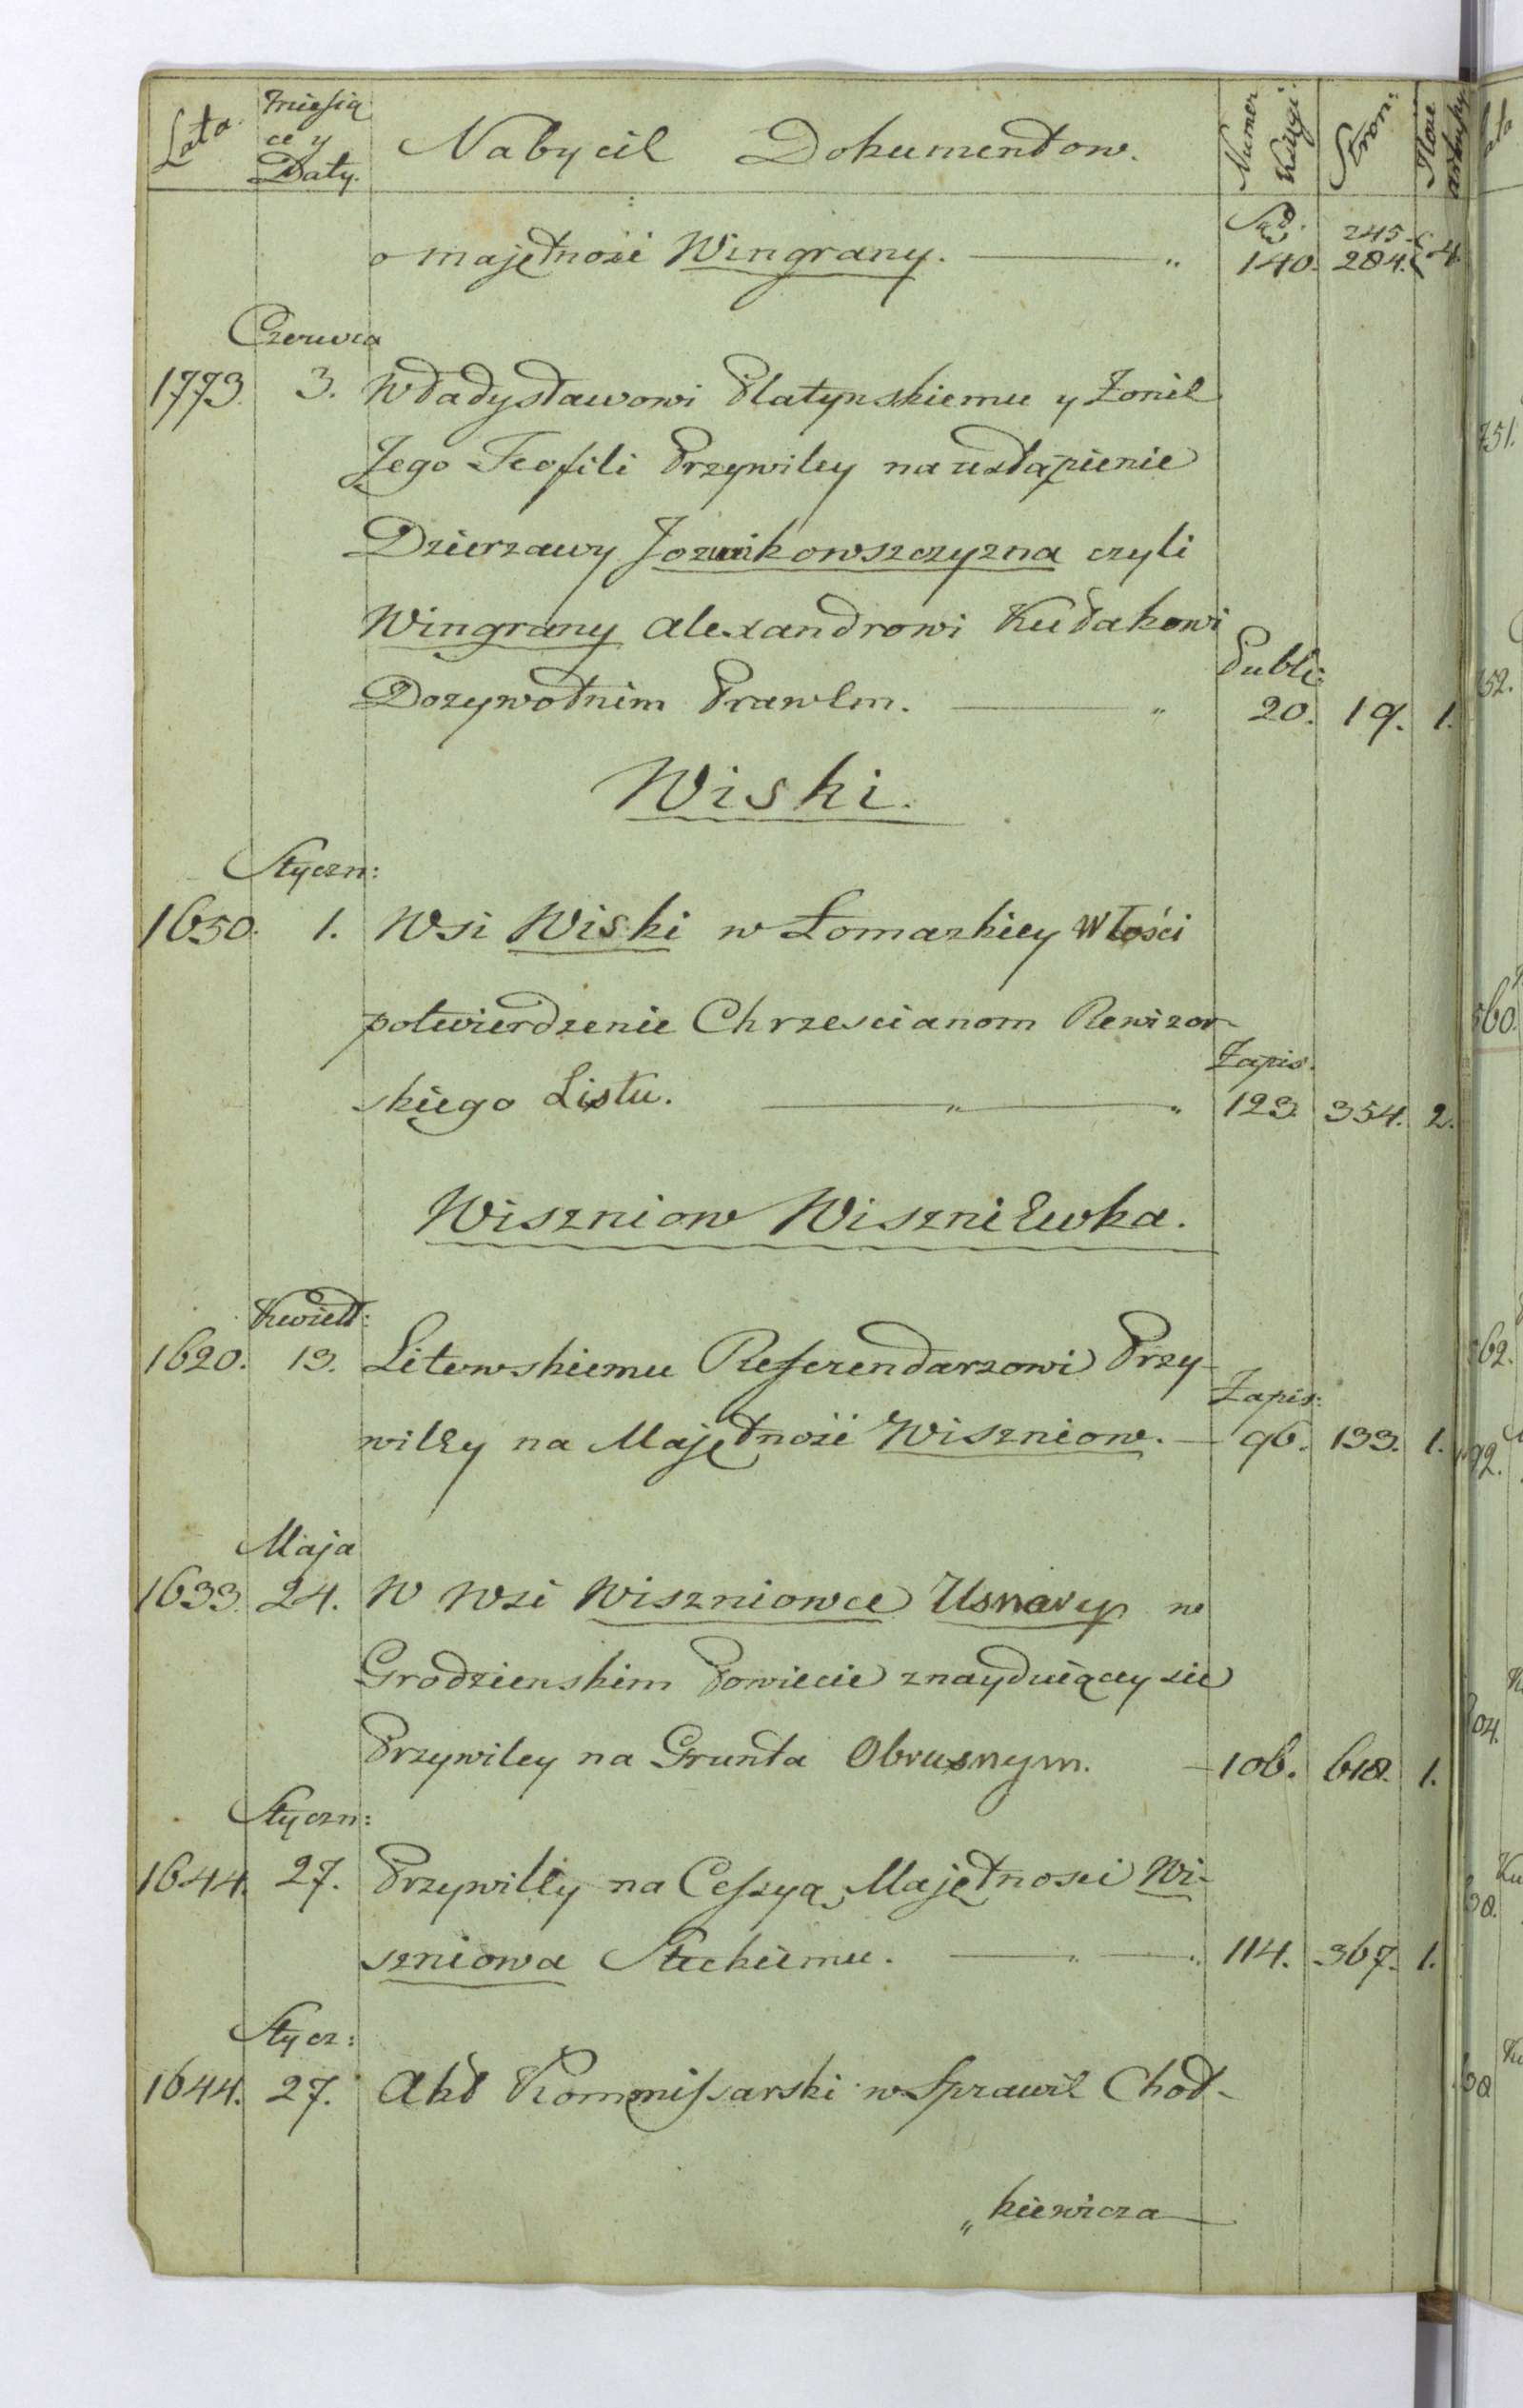 Lata. Miesiące y Daty. Nabycie Dokumentow. Numer Księgi. Stron: Ilosc arkuszy
o majętność Wingrany. — „ Sąd. 140. 245. 284. 4.
Czerwca
1773. 3. Władysławowi Platynskiemu y Żonie
Jego Teofili Przywiley na ustąpienie
Dzierzawy Jozwikowszczyzna czyli
Wingrany Alexandrowi Kudakowi
Dozywotnim Prawem. — „ Publi: 20. 19. 1.
Wiski.
Styczn:
1650. 1. Wsi Wiski w Łomazkiey Włości
potwierdzenie Chrzescianom Rewizor-
skiego Listu. — „ — „ Zapis. 123. 354. 2.
Wiszniow Wiszniewka.
Kwiet:
1620. 13. Litewskiemu Referendarzowi Przy-
wiley na Majętność Wiszniow. — Zapis: 96. 133. 1.
Maja
1633. 24. W Wsi Wiszniowce Usnary w
Grodzienskim Powiecie znayduiącey sie
Przywiley na Grunta Obrusnym. — 106. 618. 1.
Styczn:
1644. 27. Przywiley na Cessyą Majętnosci Wi-
szniowa Stuckiemu. — „ — „ 114. 367. 1.
Stycz:
1644. 27. Akt Kommissarski w Sprawie Chod-
„kiewicza